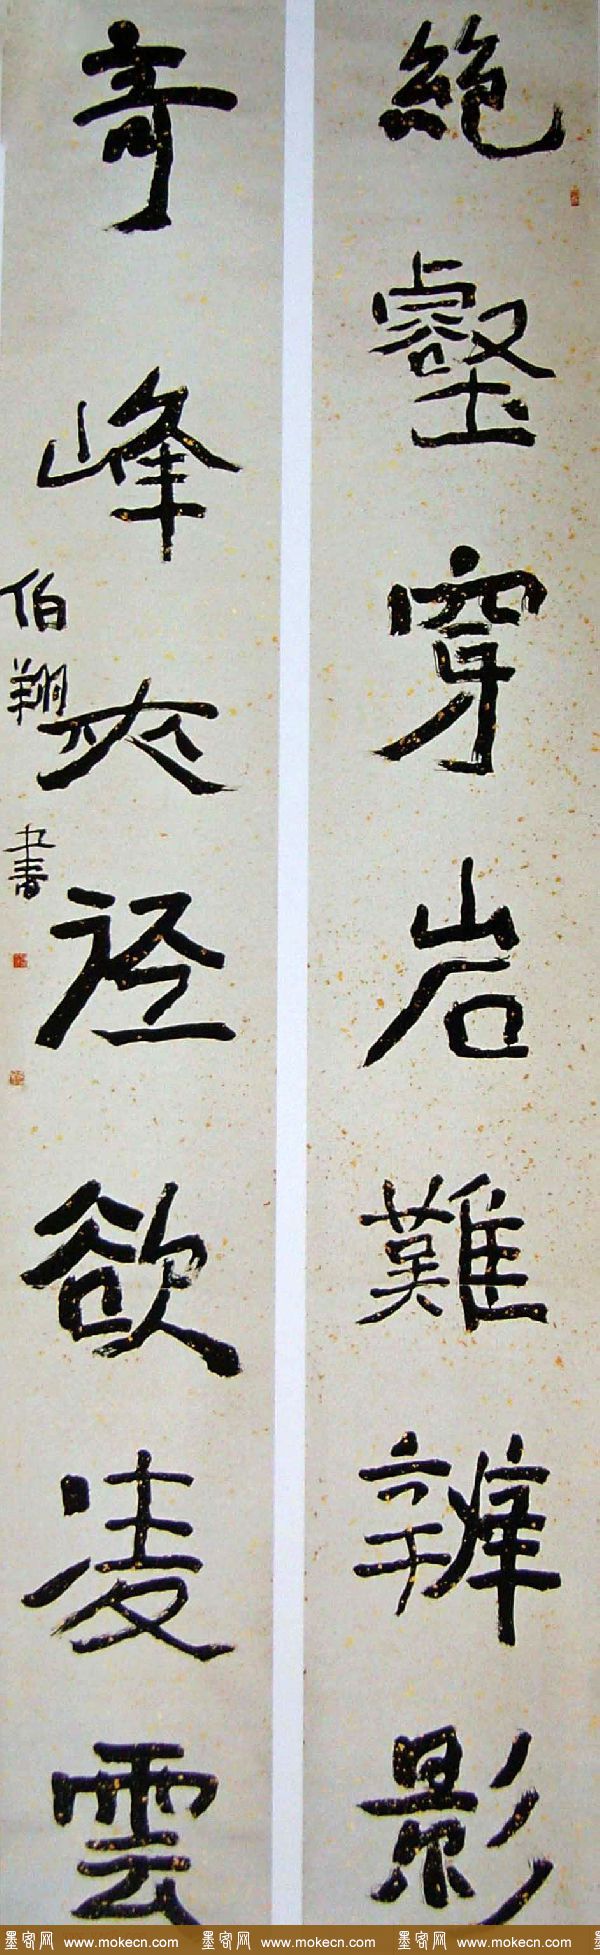 絶壑穿岩難辨影
奇峰夾径欲凌雲
伯翔書
墨客网 www.mokecn.com 墨客网 www.mokecn.com 墨客网 www.mokecn.com 墨客网